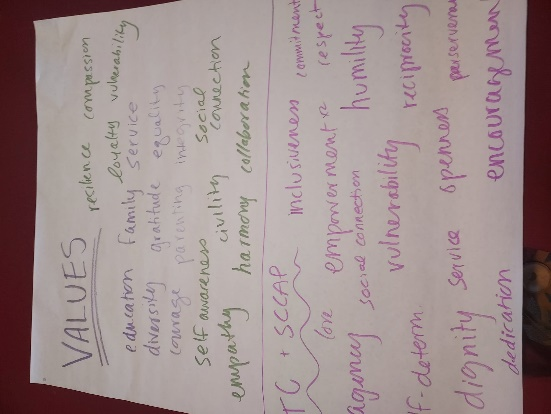 VALUES
resilience compassion
education family loyalty vulnerability
diversity gratitude service
courage parenting equality
integrity
self awareness civility social connection
empathy harmony collaboration
TC + SCCAP inclusiveness commitment
love empowerment respect
agency social connection humility
f-determ vulnerability reciprocity
dignity service openness parserveran
dedication encouragemen